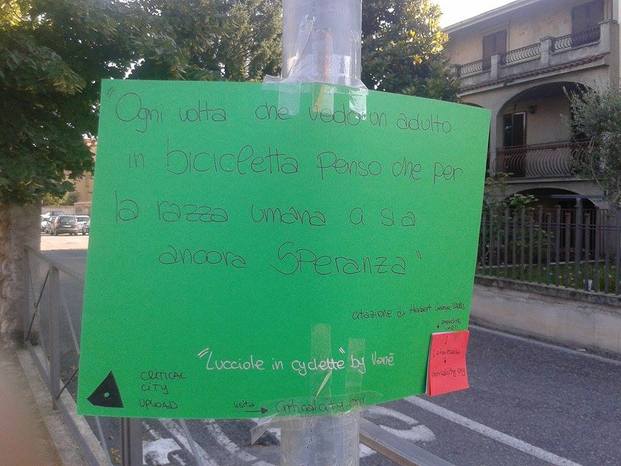 "Ogni volta che vedo un adulto
in bicicletta penso che per
la razza umana ci sia
ancora Speranza"
citazione di Herbert George Wells
"Lucciole in cyclette" by Vanè
CRITICAL
CITY
UPLOAD
visita → criticalcity.org